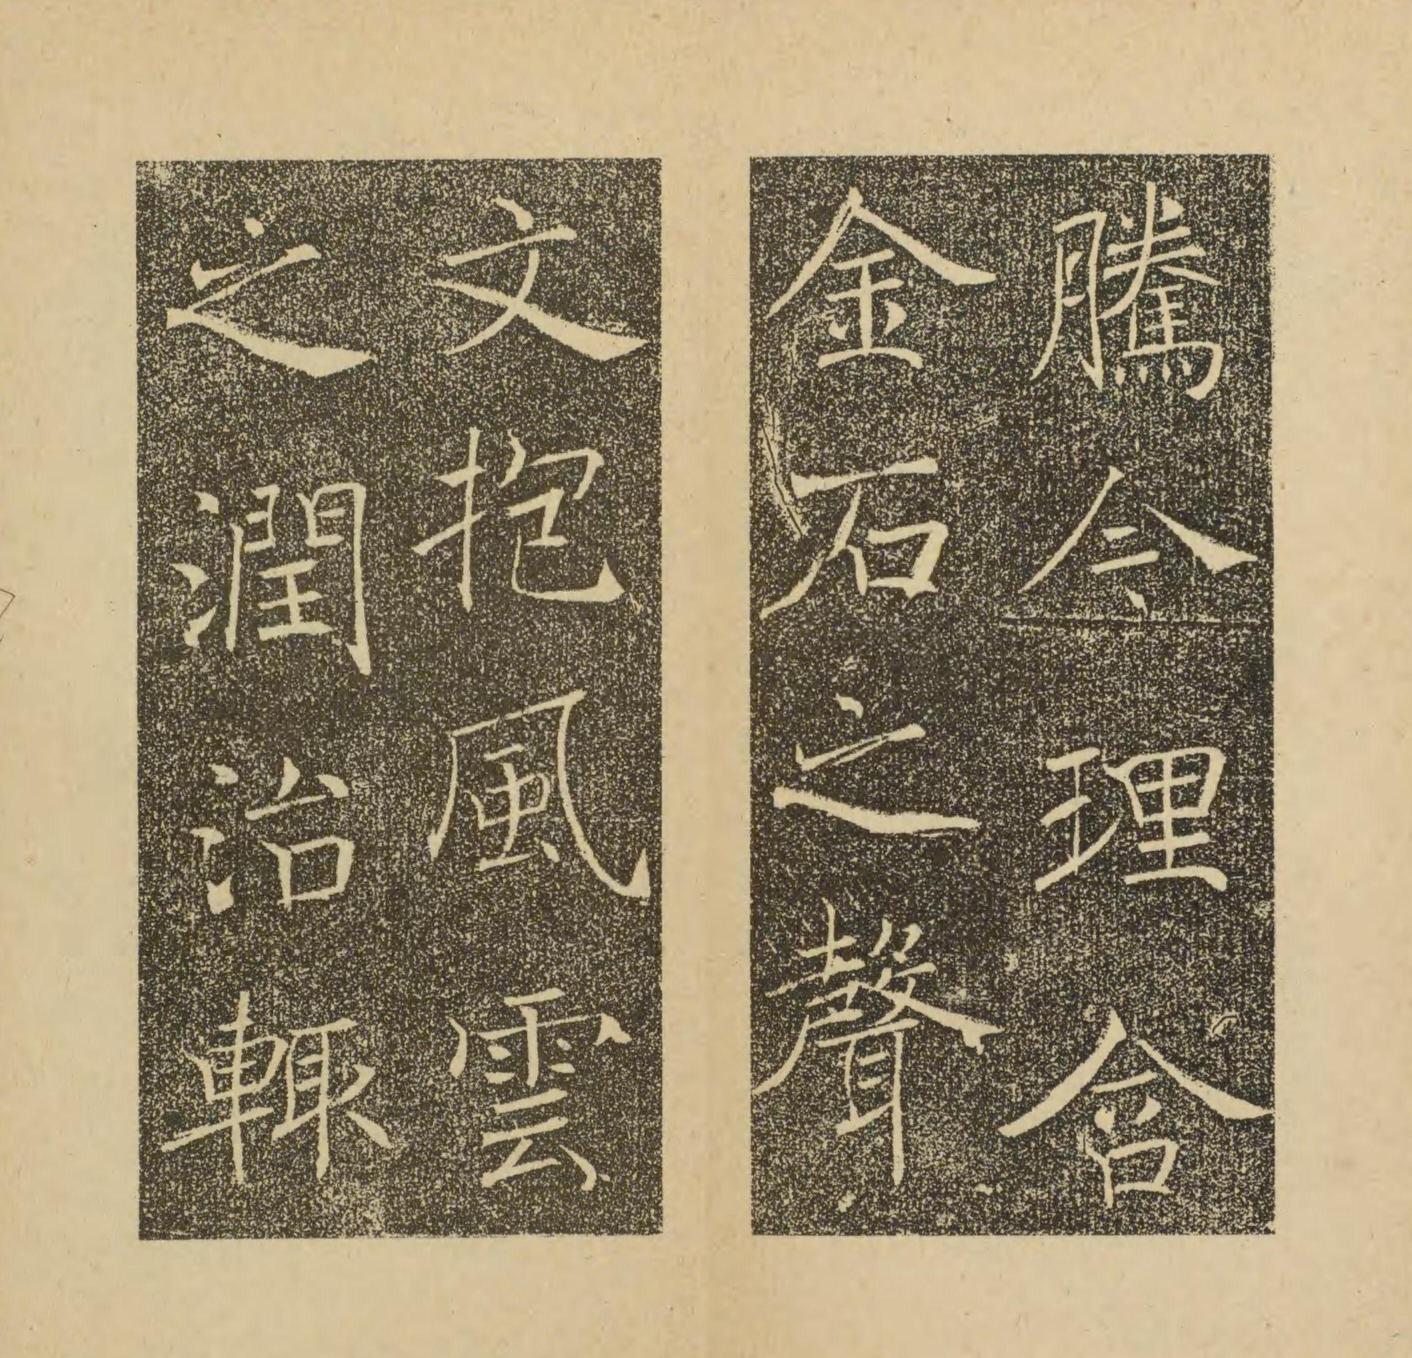 騰今理含
金石之聲
文抱風雲
之潤治輙